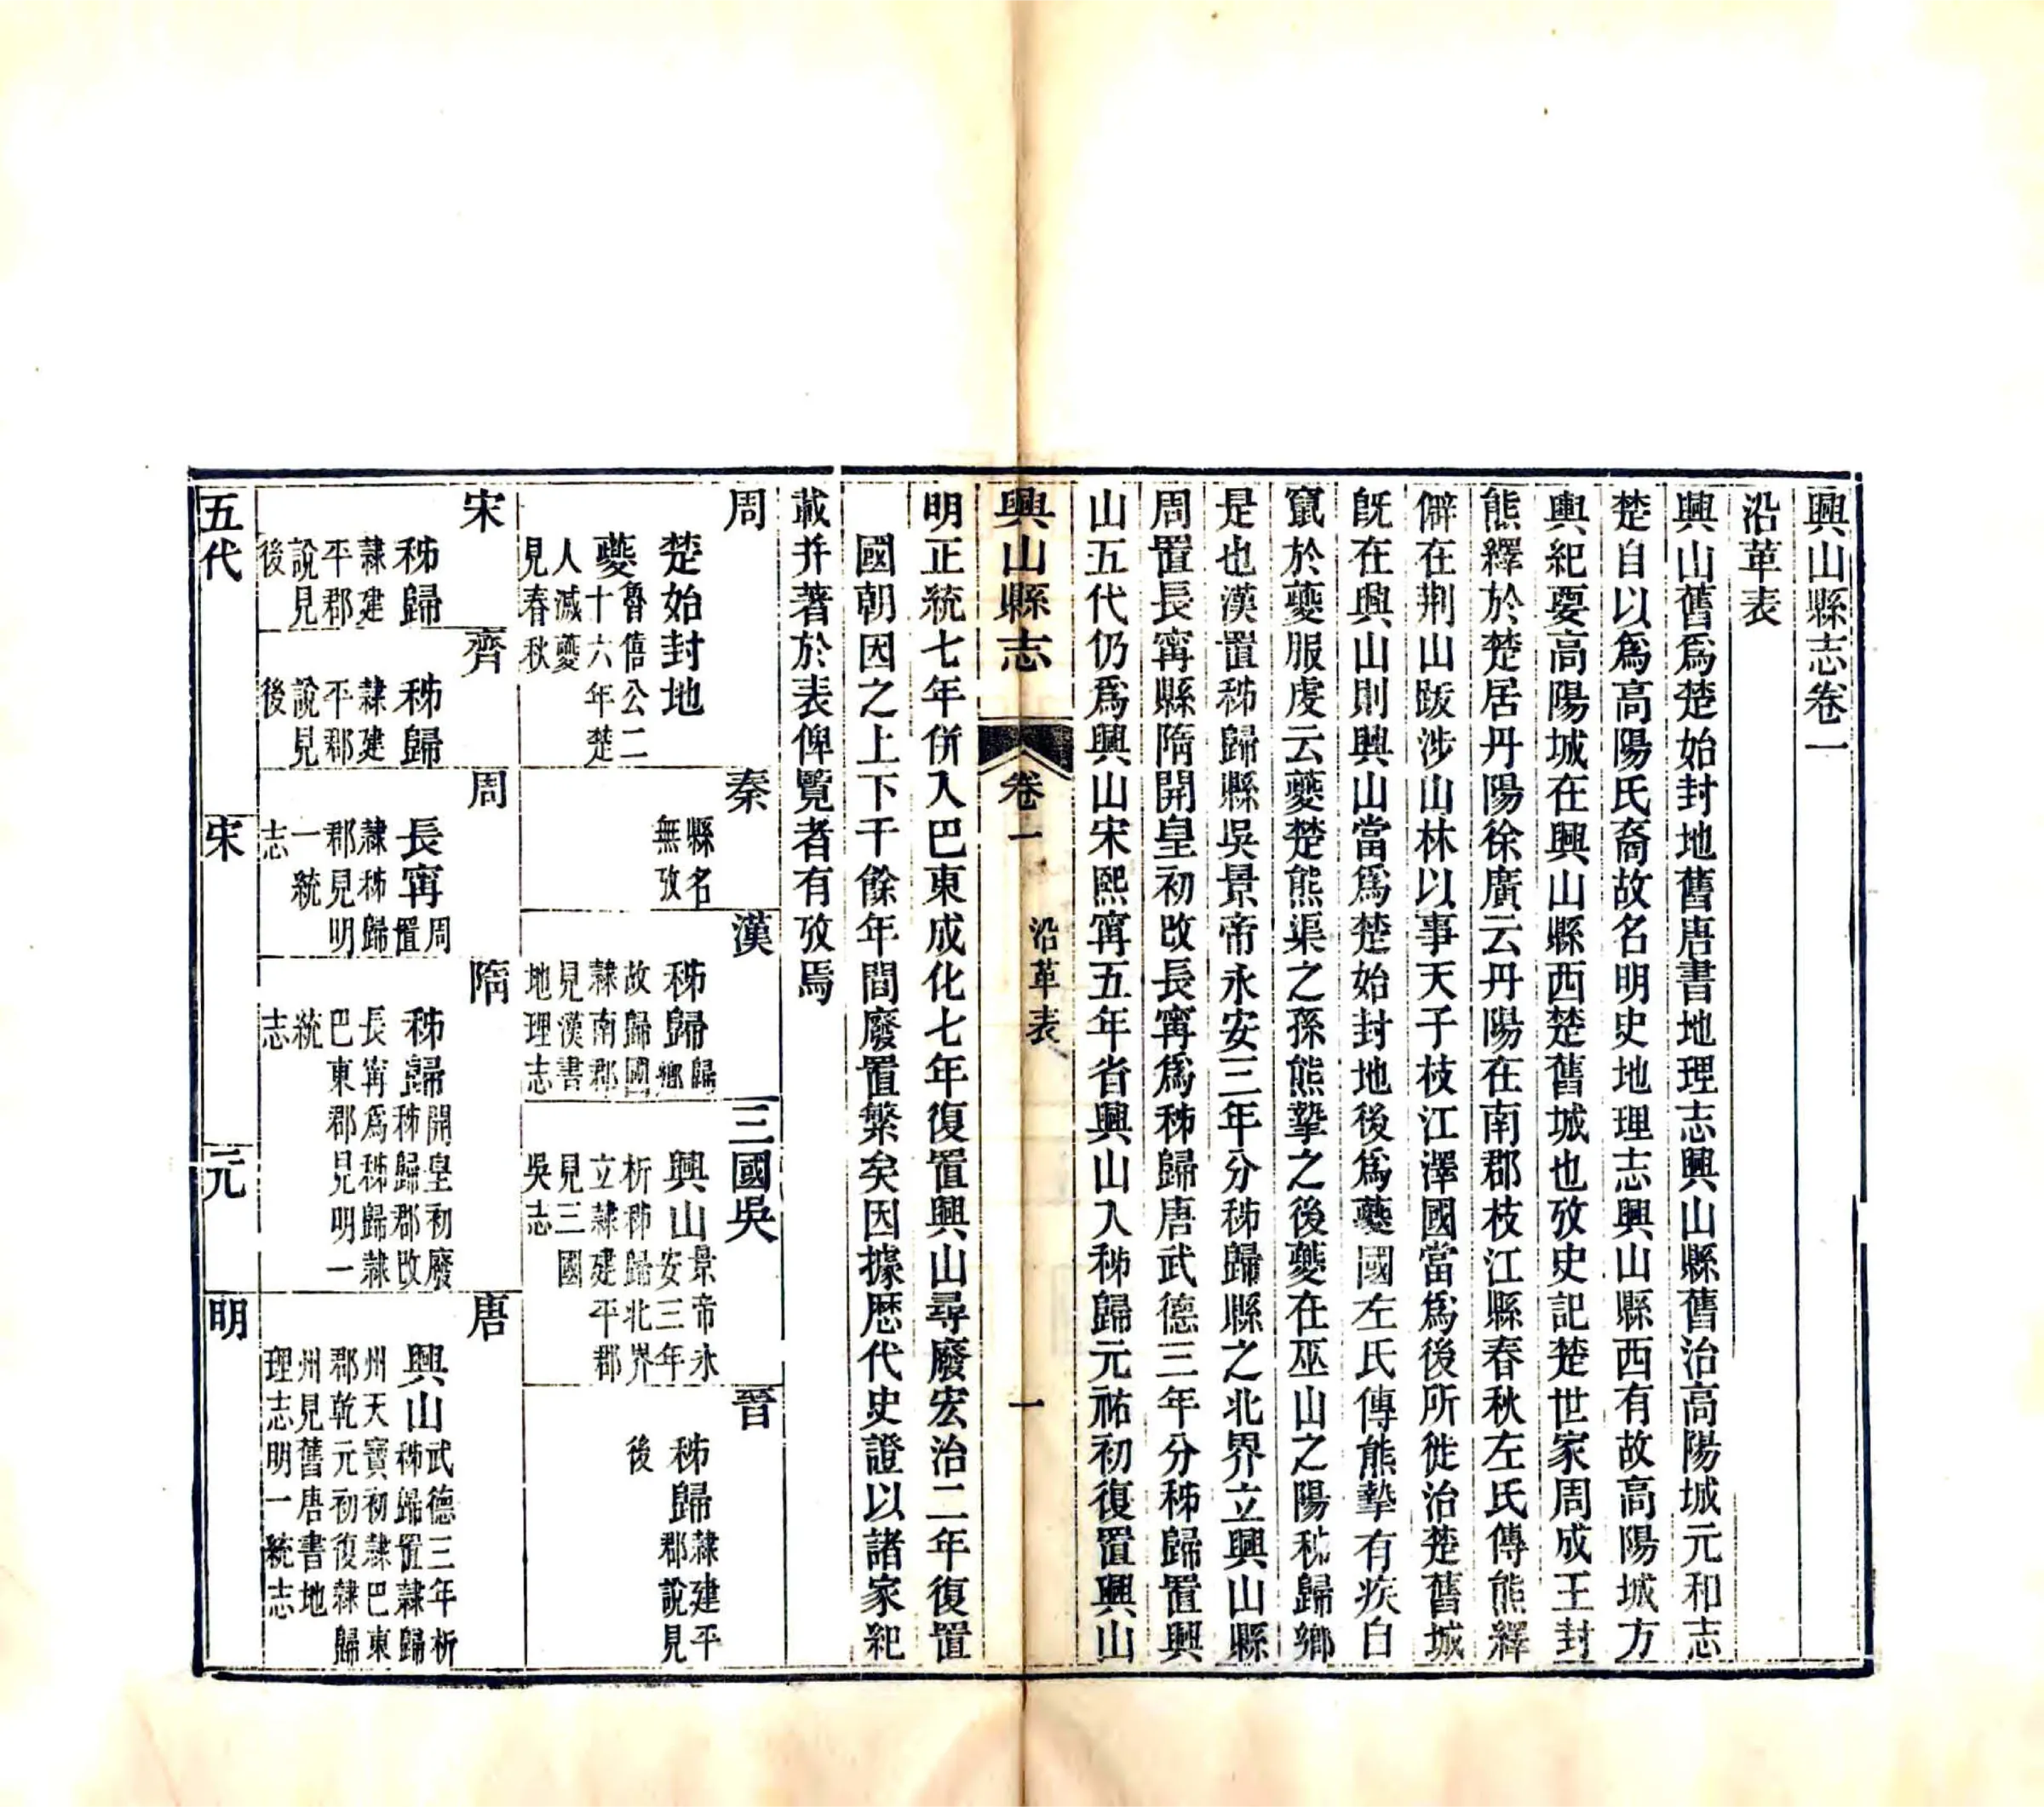 興山縣志卷一
沿革表
興山舊爲楚始封地舊唐書地理志興山縣舊治高陽城元和志
楚自以爲高陽氏裔故名明史地理志興山縣西有故高陽城方
輿紀要高陽城在興山縣西楚舊城也攷史記楚世家周成王封
熊繹於楚居丹陽徐廣云丹陽在南郡枝江縣春秋左氏傳熊繹
僻在荆山跋涉山林以事天子枝江澤國當爲後所徙治楚舊城
旣在興山則興山當爲楚始封地後爲夔國左氏傳熊摯有疾自
竄於夔服虔云夔楚熊渠之孫熊摯之後夔在巫山之陽秭歸鄉
是也漢置秭歸縣吳景帝永安三年分秭歸縣之北界立興山縣
周置長甯縣隋開皇初改長甯爲秭歸唐武德三年分秭歸置興
山五代仍爲興山宋熙甯五年省興山入秭歸元祐初復置興山
興山縣志 卷一 沿革表 一
明正統七年併入巴東成化七年復置興山尋廢宏治二年復置
國朝因之上下千餘年間廢置繁矣因據歴代史證以諸家紀
載并著於表俾覽者有攷焉
周
楚始封地
夔魯僖公二十六年楚
人滅夔
見春秋
秦
縣名
無攷
漢
秭歸歸鄉
故歸國
隸南郡
見漢書
地理志
三國吳
興山景帝永安三年
析秭歸北界
立隸建平郡
見三國
吳志
晉
秭歸隸建平郡說見
後
宋
秭歸
隸建
平郡
說見
後
齊
秭歸
隸建
平郡
說見
後
周
長甯周置
隸秭歸
郡見明
一統
志
隋
秭歸開皇初廢秭歸郡改
長甯爲秭歸隸
巴東郡見明一
統
志
唐
興山武德三年析秭歸置隸歸
州天寶初隸巴東
郡乾元初復隸歸
州見舊唐書地
理志明一統志
五代
宋
元
明